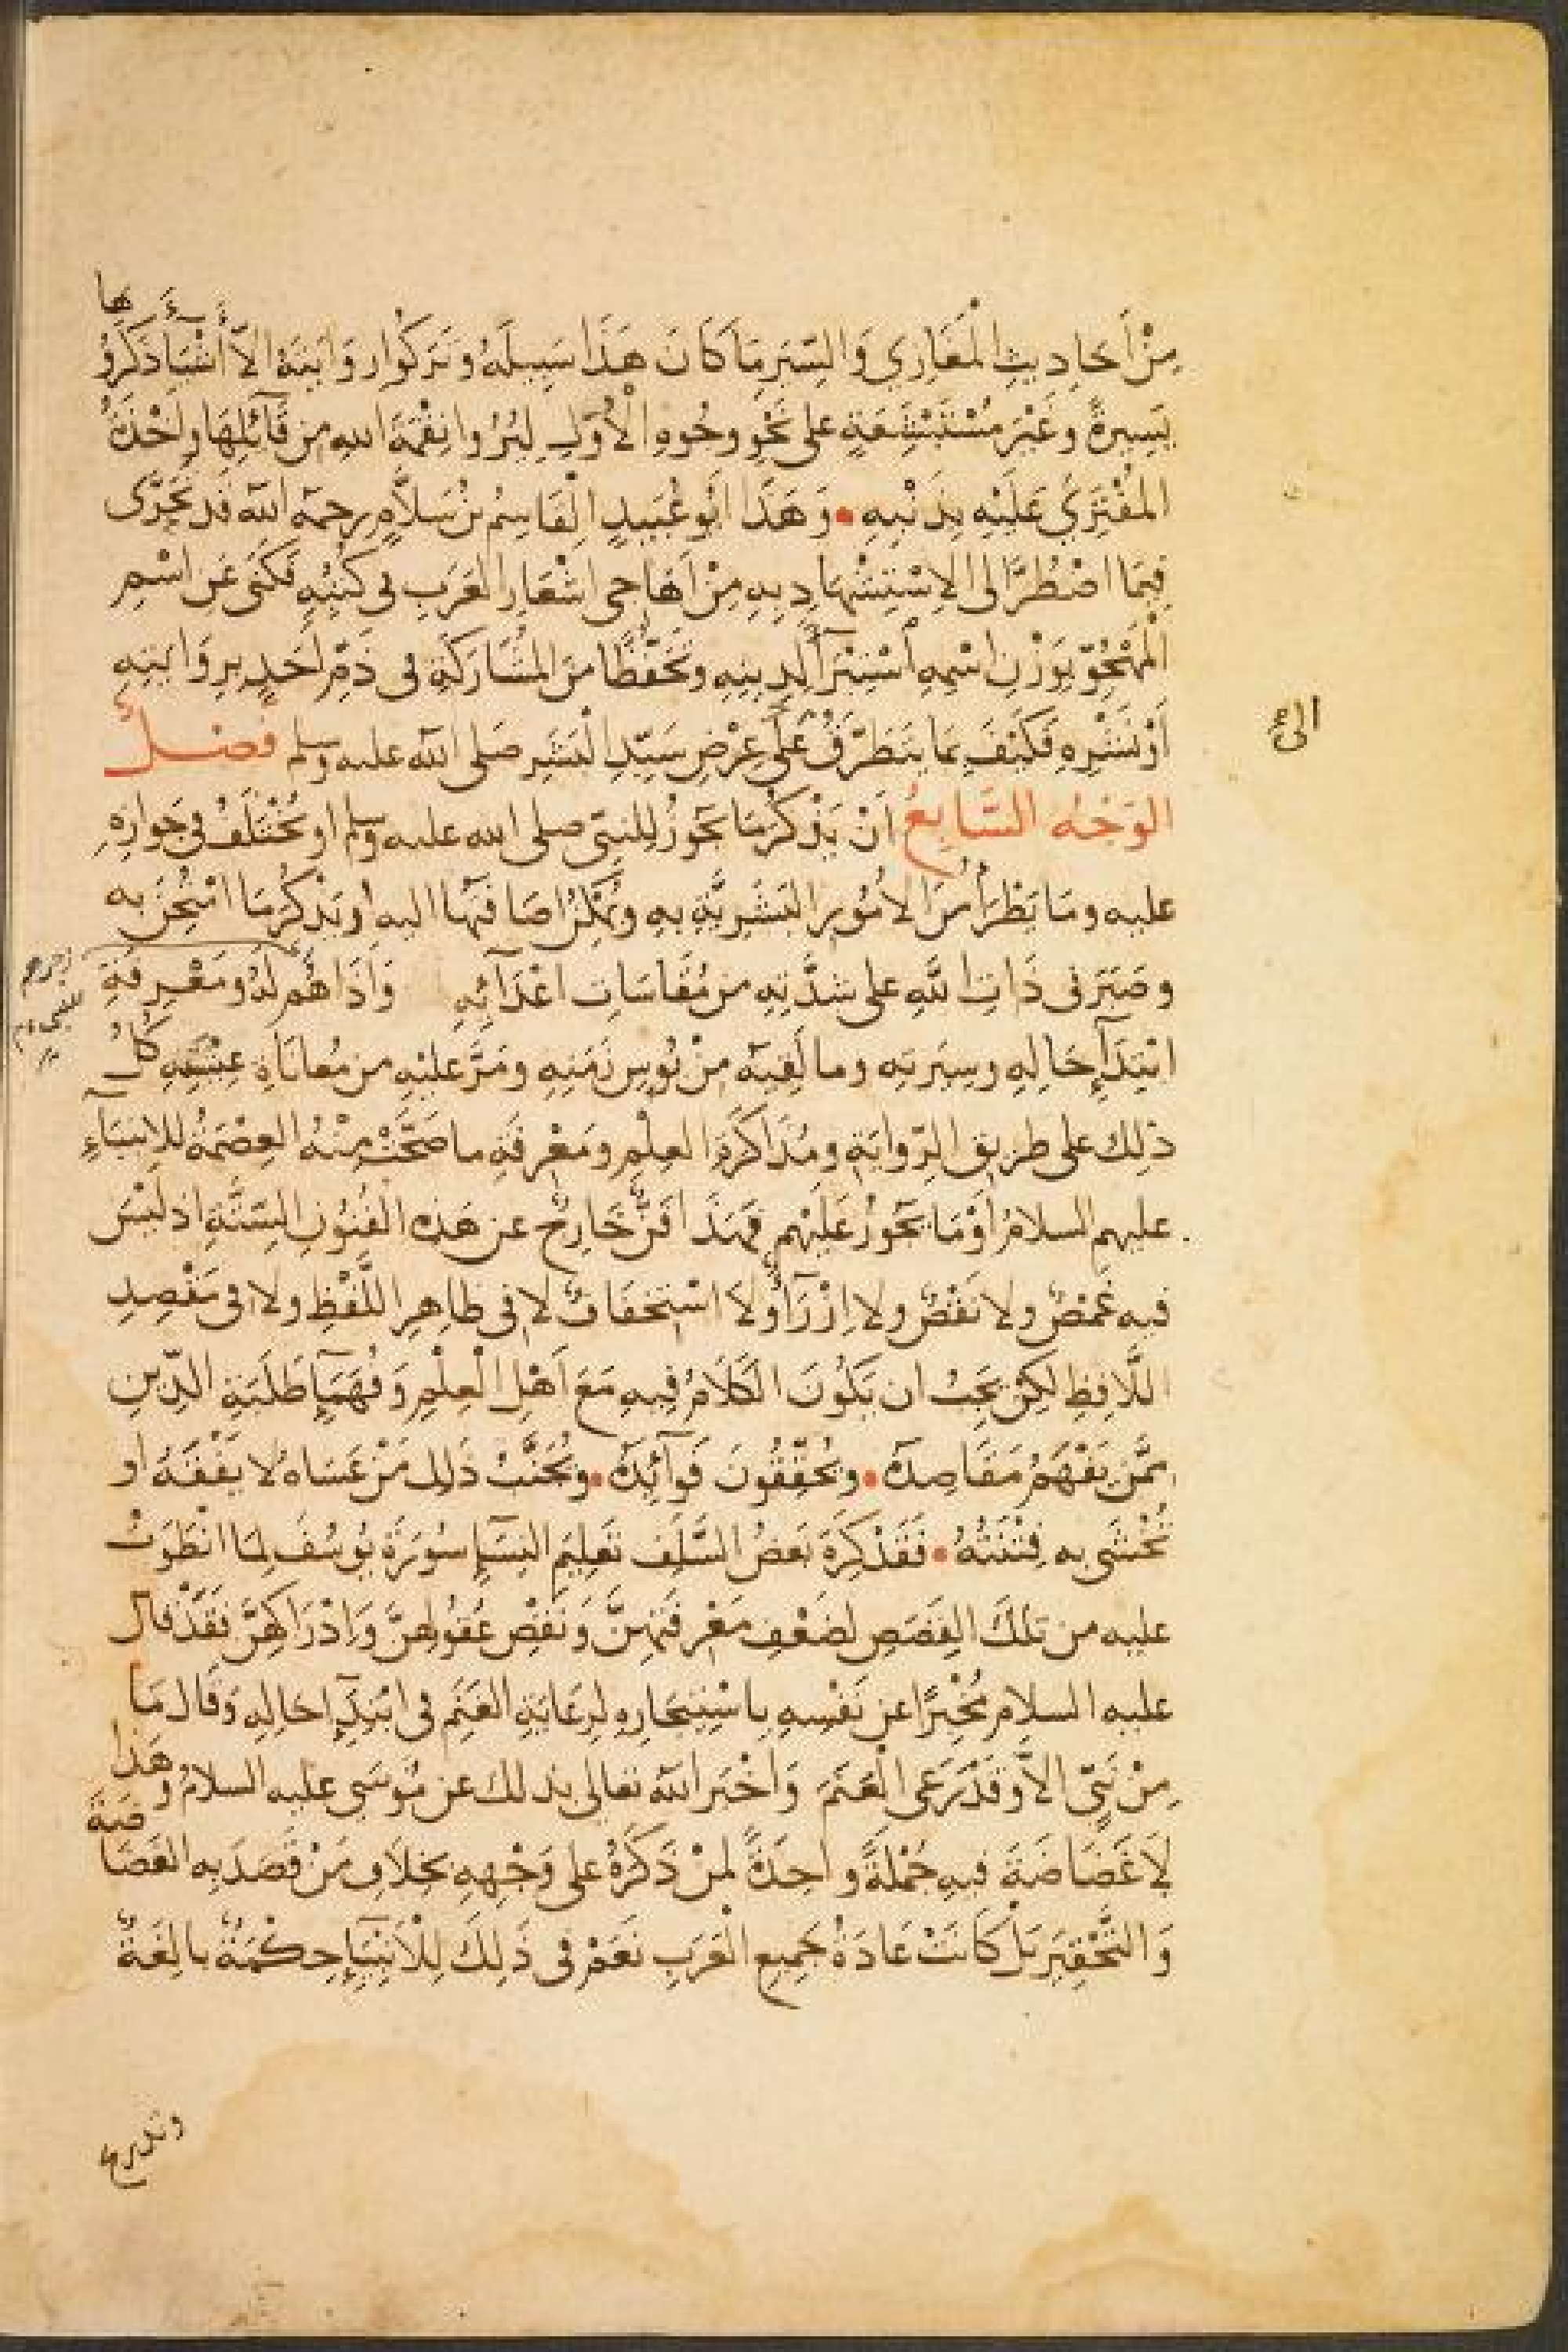 مِنْ أَحَادِيثِ الْمَغَازِي وَالسِّيَرِ مَا كَانَ هَذَا سَبِيلَهُ وَتَرَكُوا رِوَايَتَهُ الاّ أَشْيَاءَ ذَكَرُوها
يَسِيرةً وغَيْرَ مُسْتَبْشَعَةٍ على نَحْوِ وجُوهِ الْأُوَلِ لِيُرُوا نِقْمَةَ الله من قَائِلِهَا وأَخْذَهُ
المُفْتَرِي عَلَيْهِ بِذَنْبِهِ • وَهَذَا ابُو عُبَيدٍ الْقَاسِمُ بْنُ سَلاَّمٍ رحمه الله قد تَحَرَّى
فِيمَا اضْطُرَّ الى الاِسْتِشْهادِ بِهِ مِنْ اَهَاجِى اشْعَارِ العَرَبِ فى كُتُبِهِ فَكَنَى عَن اسْمِ
الْمَهْجُوِّ بِوَزْنِ اسْمِهِ اسْتِبْرَآءً لِدِينِهِ وتَحَفُّظًا مِنَ المُشَارَكَةِ فى ذَمِّ اَحَدٍ بِرِوَايَتِهِ
اَوْ نَشْرِهِ فَكَيْفَ بِمَا يَتَطَرَّقُ عَلَى عِرْضِ سَيِّدِ الْبَشَرِ صَلى الله عليه وسلم فصْلٌ
الى
الوَجْهُ السَّابِعُ اَنْ يَذْكُرَ مَا يَجُوزُ لِلنبىّ صلى الله عليه وسلم او يُخْتَلَفُ فى جَوازِهِ
عليه وما يَطْرَأُ مِنَ الاُمُورِ البَشَرِيَّةِ بِهِ ويُمْكِنُ اضَافَتُهَا اليه اَو يَذْكُرَ مَا امْتُحِنَ به
وصَبَرَ فى ذَاتِ اللَّهِ على شِدَّتِهِ من مُقَاسَاتِ اعْدَآئِهِ وَأَذَاهُم لَهُ ومَعْرِفَةِ
ابْتِدَآءِ حَالِهِ وسِيرَتِه وما لَقِيَهُ مِنْ بُوسِ زَمَنِهِ ومَرَّ عليْهِ من مُعانَاةِ عِيشَتِهِ كُلُّ
ذلِكَ على طريقِ الرّوايَةِ ومُذَاكَرَةِ العِلْمِ ومَعْرِفَةِ ما صَحَّتْ مِنْهُ العِصْمَةُ للانبيَآءِ
عليهم السلامُ اَوْ مَا يَجُوزُ عَلَيْهم فَهَذَا فَنٌّ خَارِجٌ عن هَذِهِ الفُنُونِ السِّتَّةِ اذ لَيْسَ
فيه غَمْصٌ ولا نَقْصٌ ولا اِزْرَآءٌ ولاَ اسْتِخفَافٌ لا فى ظَاهِرِ اللَّفْظِ ولا فى مَقْصِدِ
اللَّافِظِ لكِنْ يَجِبُ ان يَكُونَ الكَلَامُ فِيهِ مَعَ اَهْلِ الْعِلْمِ وَفُهَمَآءِ طَلَبَةِ الدِّينِ
مِمَّن يَفْهَمُ مَقَاصِدَهُ • ويُحَقِّقُونَ فَوَآئِدَهُ • ويُجَنَّبُ ذَلِكَ مَنْ عَسَاهُ لا يَفْقَهُ او
يُخْشَى به فِتْنَتُهُ • فَقَدْ كَرِهَ بَعْضُ السَّلَفِ تَعْلِيمَ النِّسَآءِ سُورَةَ يُوسُفَ لِمَا انْطَوَتْ
عليه من تلكَ القِصَصِ لضَعْفِ مَعْرِفَتِهِنَّ وَنَقْصِ عُقُولِهِنَّ وَادْرَاكِهِنَّ فَقَدْ قال
عليه السلام مُخْبِرًا عن نَفْسِهِ باسْتِيجَارِهِ لِرعَايَةِ الغَنَمِ فى ابْتِدَآءِ حَالِهِ وَقَال مَا
مِنْ نَبِىٍّ الاَّ وَقَدْ رَعى الْغَنَمَ وَاخْبَرَ الله تعالى بذلك عن مُوسَى عليه السلامُ وهَذا
لَا غَضَاضَةَ فيهِ جُمْلَةً واحِدَةً لمنْ ذَكَرَهُ على وَجْهِهِ بخِلَافِ مَنْ قَصَدَ به الغَضَاضَةَ
وَالتَّحْقِيرَ بَل كَانَتْ عَادَةُ جَمِيعِ الْعَرَبِ نَعَمْ فى ذَلِكَ لِلْاَنْبِيَآءِ حِكْمَةٌ بالِغَةٌ
وتدريج